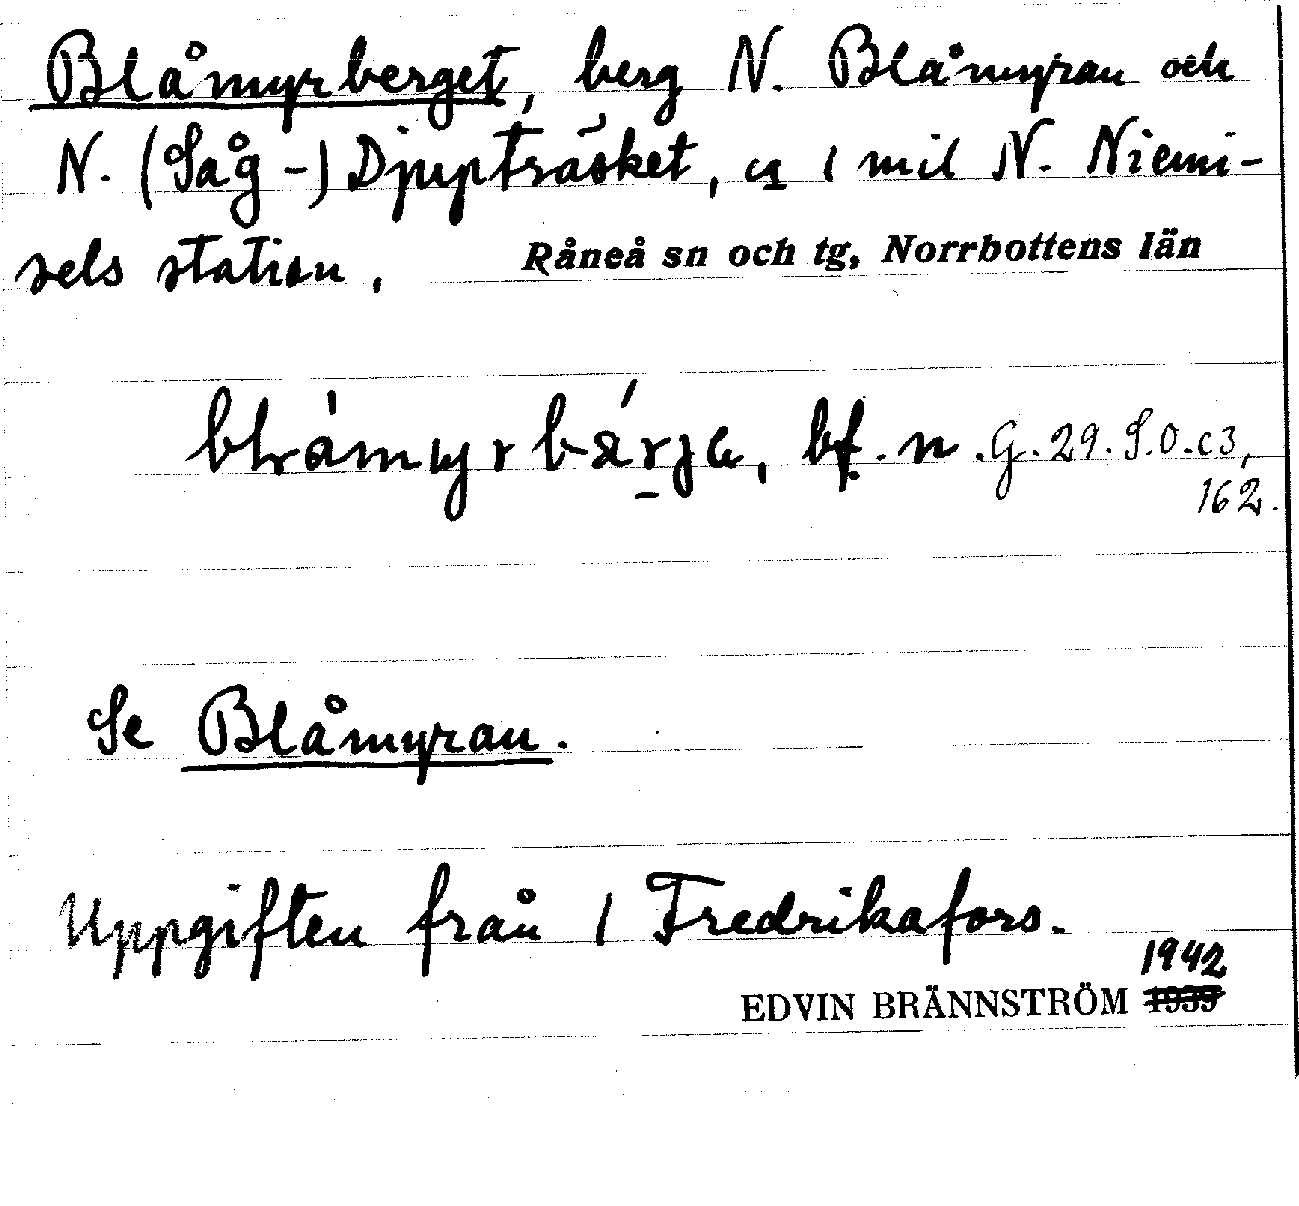 Blåmyrberget, berg N. Blåmyran och
N. (Såg-) Djupträsket, ca 1 mil N. Niemi-
sels station. Råneå sn och tg, Norrbottens län
bf. n. G. 29. S.O. c3,
162.
Se Blåmyran.
Uppgiften från 1 Fredrikafors.
1942
EDVIN BRÄNNSTRÖM 1939